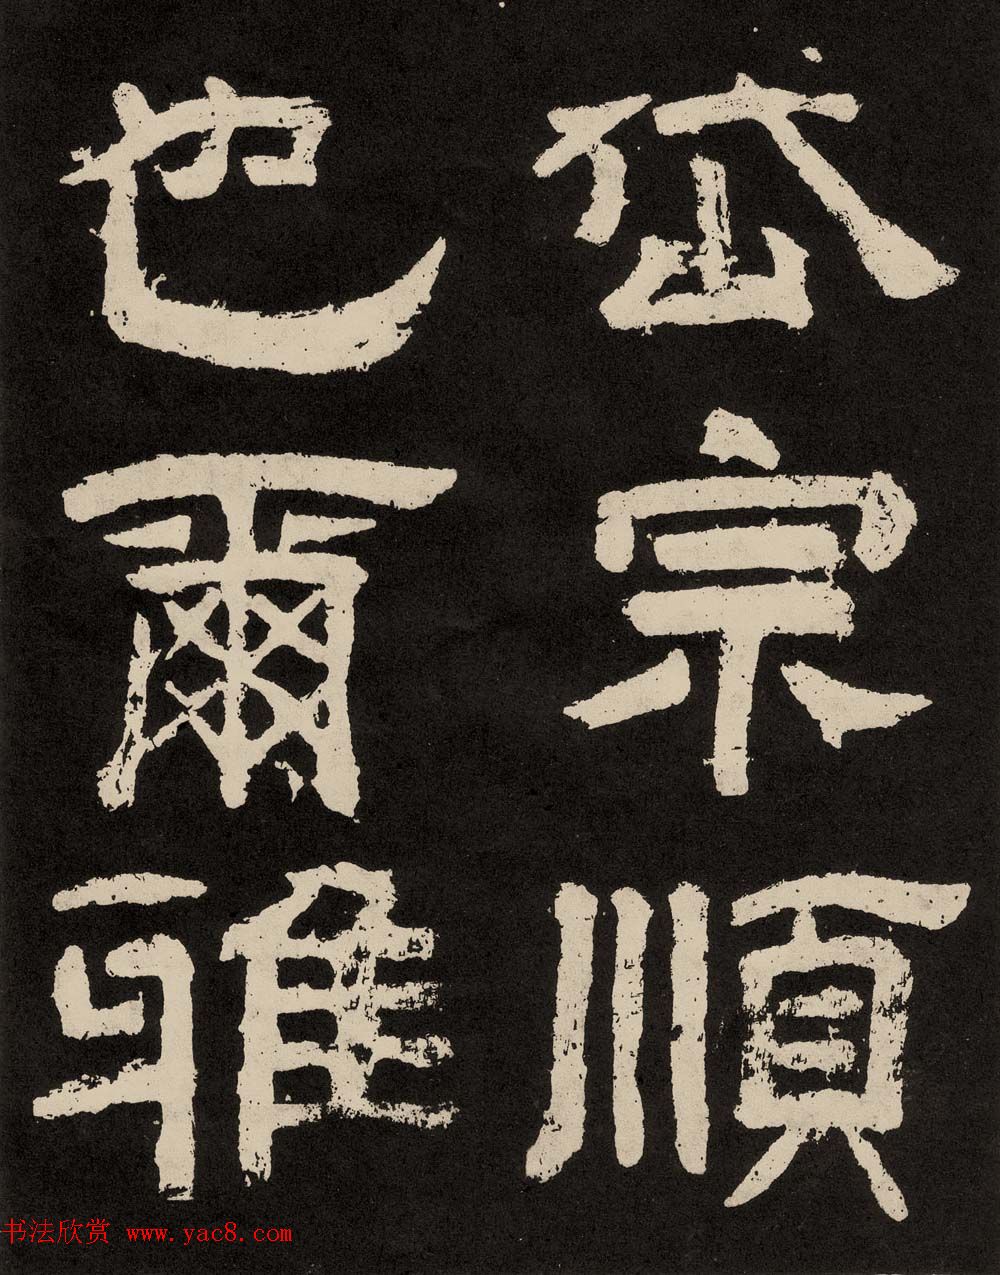 岱宗順
也爾雅
书法欣赏 www.yac8.com